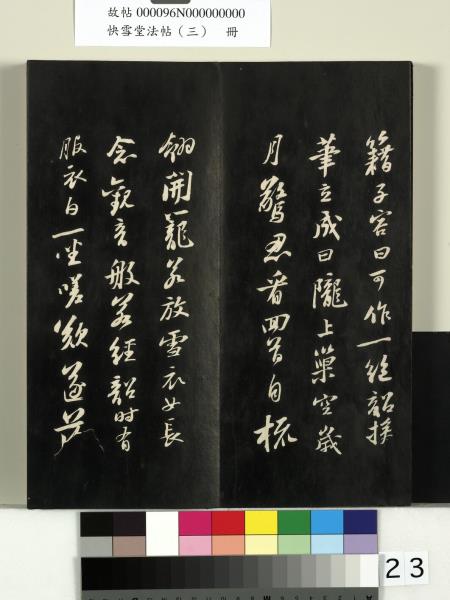 故帖 000096N000000000
快雪堂法帖（三） 冊
籍子容曰可作一絕韶援
筆立成曰隴上巢空歲
月驚忍看回首自梳
翎開籠若放雪衣女長
念觀音般若經韶時有
服衣白一坐嗟歎遂落
23